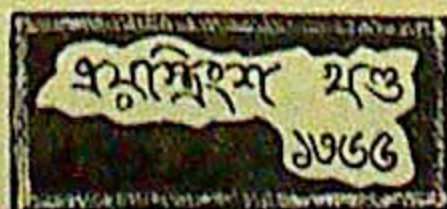 ত্রয়স্ত্রিংশ খণ্ড
১৩৬৬